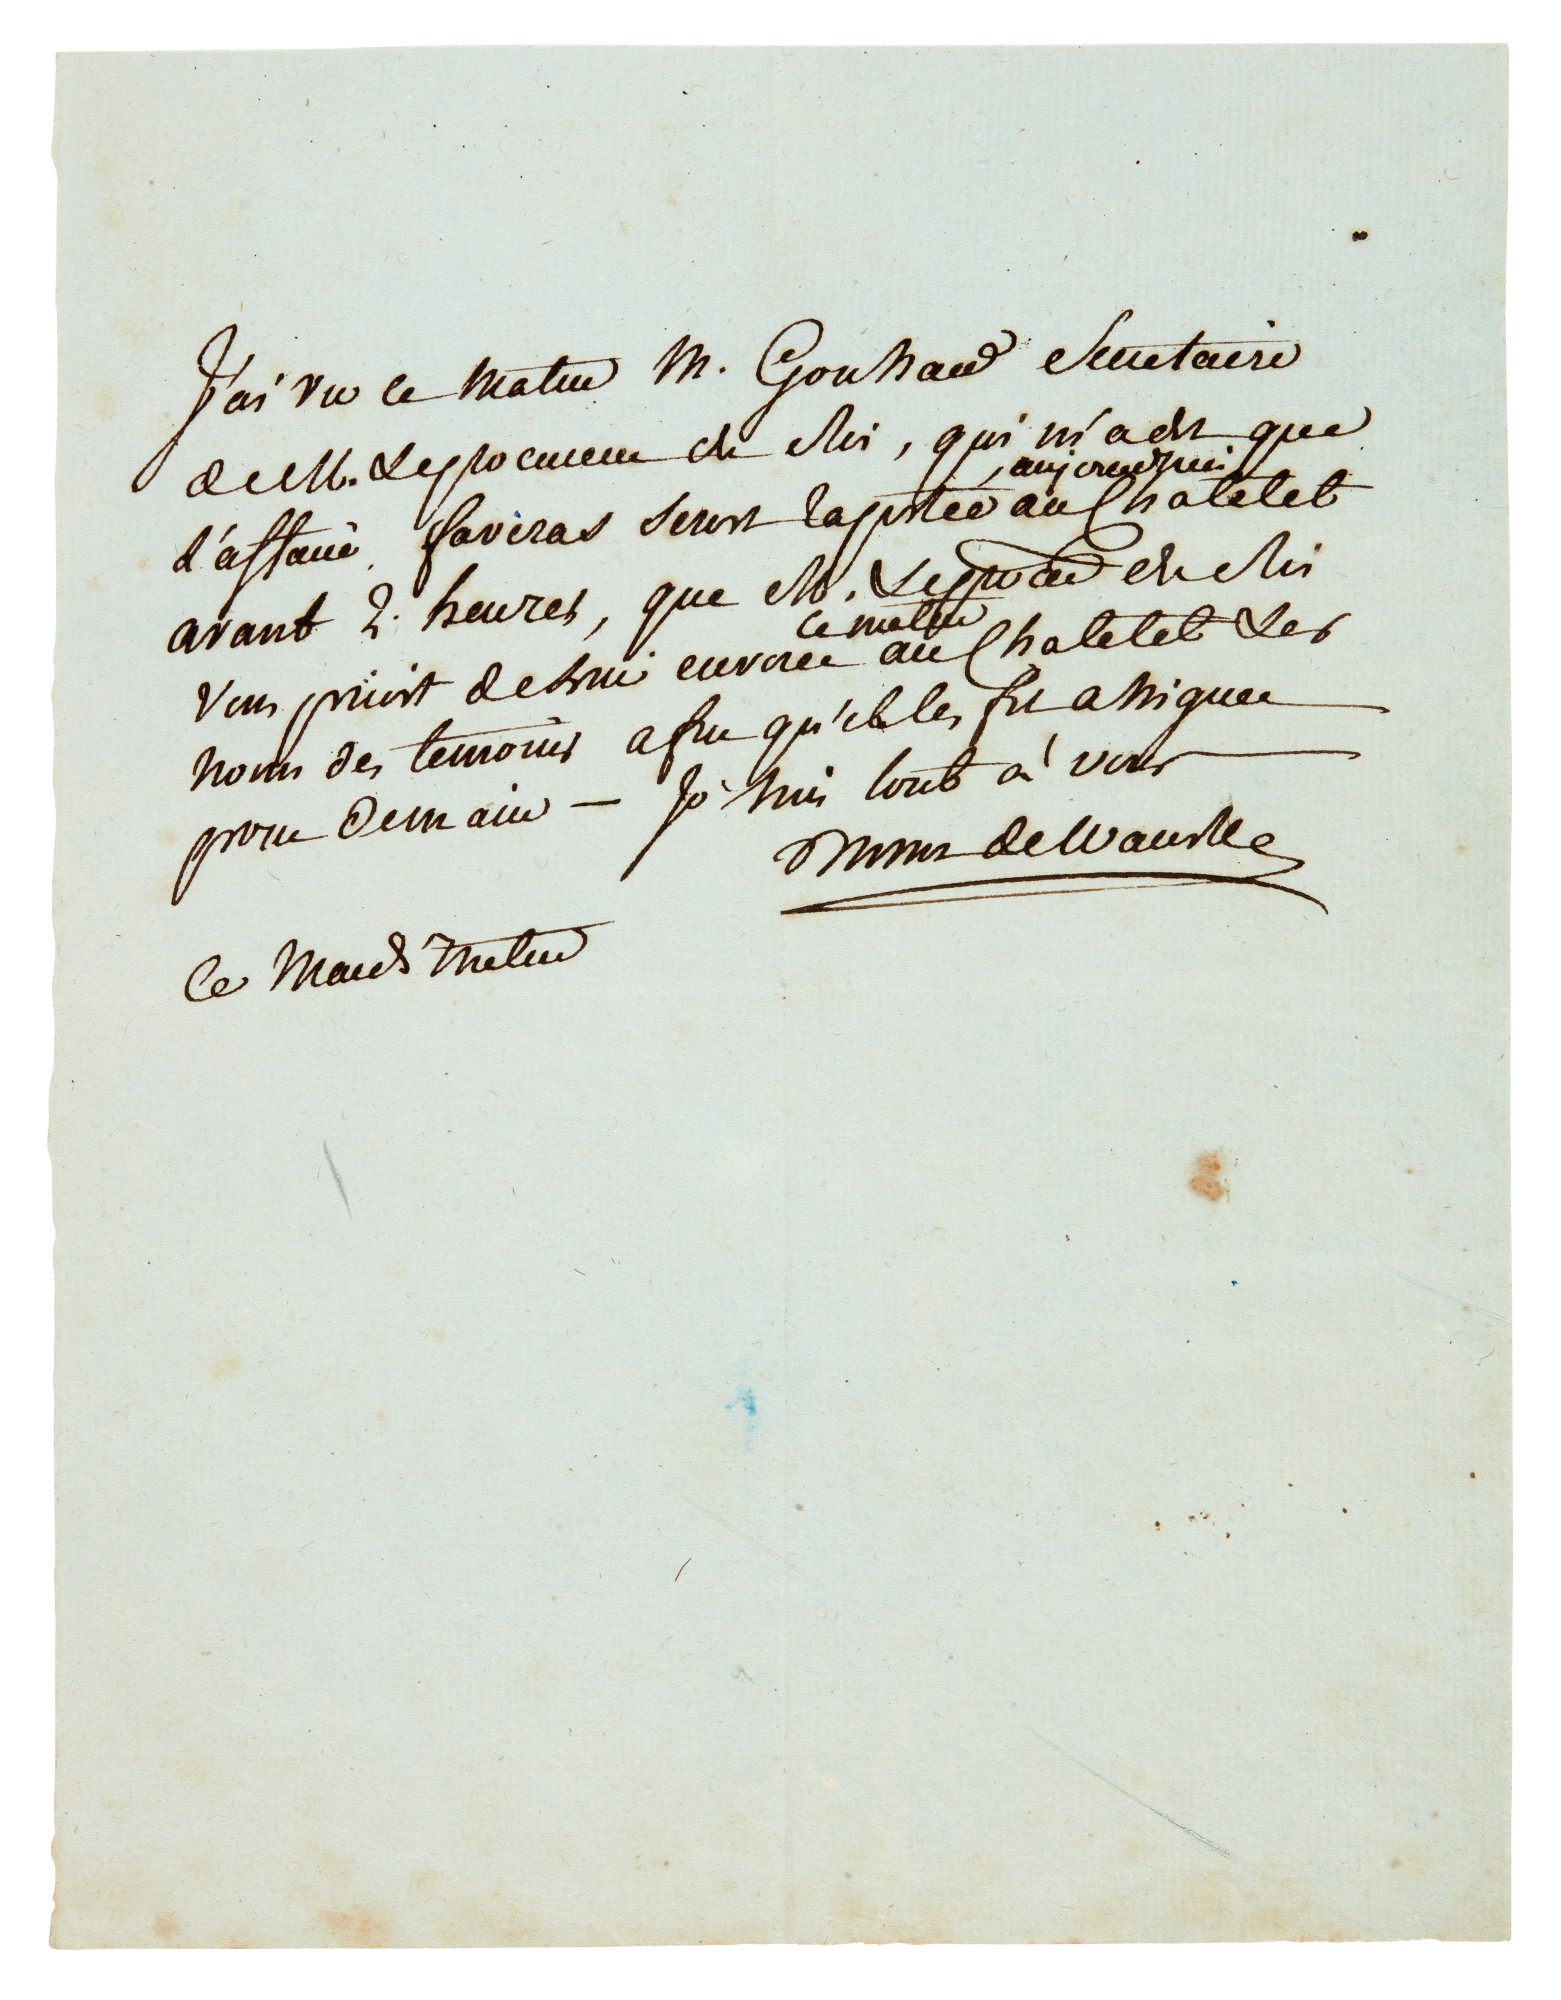 J'ai vu ce matin M. Gouhaud Secretaire
de M. Le procureur du Roi, qui m'a dit que
l'affaire favras seroit raportée au Chatelet
, aujourd'hui
avant 2. heures, que M. Le proc du Roi
vous prioit de lui envoier au Chatelet Les
ce matin
noms des temoins afin qu'il les fit assigner
pour Demain — Je suis tout à vous
de
Ce Mardi matin